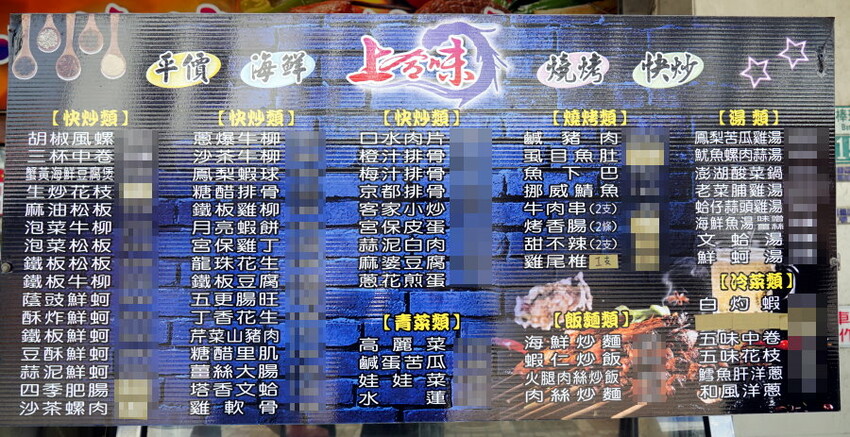 平價 海鮮 上合味 燒烤 快炒
【快炒類】
胡椒風螺
三杯中卷
蟹黃海鮮豆腐煲
生炒花枝
麻油松板
泡菜牛柳
泡菜松板
鐵板松板
鐵板牛柳
蔭豉鮮蚵
酥炸鮮蚵
鐵板鮮蚵
豆酥鮮蚵
蒜泥鮮蚵
四季肥腸
沙茶螺肉
【快炒類】
蔥爆牛柳
沙茶牛柳
鳳梨蝦球
糖醋排骨
鐵板雞柳
月亮蝦餅
宮保雞丁
龍珠花生
鐵板豆腐
五更腸旺
丁香花生
芹菜山豬肉
糖醋里肌
薑絲大腸
塔香文蛤
雞軟骨
【快炒類】
口水肉片
橙汁排骨
梅汁排骨
京都排骨
客家小炒
宮保皮蛋
蒜泥白肉
麻婆豆腐
蔥花煎蛋
【青菜類】
高麗菜
鹹蛋苦瓜
娃娃菜
水蓮
【燒烤類】
鹹豬肉
虱目魚肚
魚下巴
挪威鯖魚
牛肉串(2支)
烤香腸(2條)
甜不辣(2支)
雞尾椎 1支
【飯麵類】
海鮮炒麵
蝦仁炒飯
火腿肉絲炒飯
肉絲炒麵
【湯類】
鳳梨苦瓜雞湯
魷魚螺肉蒜湯
澎湖酸菜鍋
老菜脯雞湯
蛤仔蒜頭雞湯
海鮮魚湯 味噌 薑絲
文蛤湯
鮮蚵湯
【冷菜類】
白灼蝦
五味中卷
五味花枝
鱈魚肝洋蔥
和風洋蔥